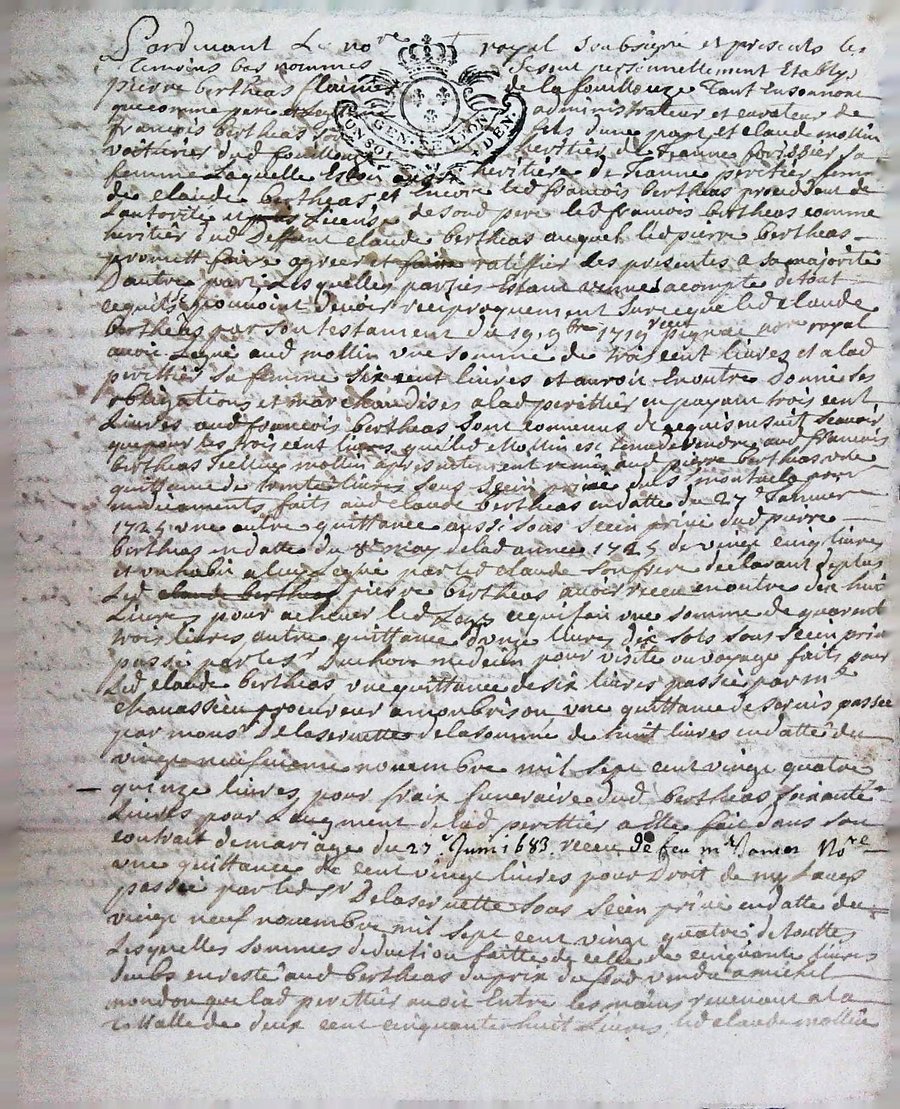 Pardevant Le no.re royal soubsigné et presents les
Temoins bas nommes se sont personnellement Etablys
pierre bertheas flaine de la fouillouze Tant en son nom
que comme pere et administrateur et curateur de
françois bertheas son fils d'une part et claud mollin
voiturier dud fouillouze heritier de Jeanne forissier sa
femme Laquelle Estoit aussy heritiere de Jeanne perittier femme
de claude bertheas et Encore led françois bertheas procedant de
L'autorité et Licence de sond pere led françois bertheas comme
heritier dud Deffunt claude bertheas auquel led pierre bertheas
promett faire agreer et ratiffier les presentes a sa majorité
D'autre part Lesquelles parties Estant venues a compte de tout
ce quils pouvoint devoir reciproquement sur ce que led claude
bertheas par son testament du 19. 9bre 1719 receu pignac nore royal
avoit Legué aud mollin une somme de trois cent livres et a lad
perittier sa femme six cent livres et auroit En outre Donné ses
obligations et marchandises a lad perittier en payant trois cent
Livres aud françois bertheas sont convenus de ce qui s'ensuit scavoir
que pour les trois cent livres que led Mollin est tenu de rendre aud françois
bertheas Icelluy mollin a presentement remis aud pierre bertheas une
quittance de trente livres sous seein privé du s montuclas pour
medicaments faits aud claude bertheas en datte du 27 Janvier
1725 une autre quittance aussi sous seein privé dud pierre
bertheas en datte du 8e may de lad année 1725 de vingt cinq livres
et un habit a luy Legué par led claude son frere declarant de plus
Led pierre bertheas avoir receu en outre dix huit
Livres pour achever led Legs ce qui fait une somme de quarente
trois livres autre quittance d'onze livres dix sols sous seein privé
passée par le sr Duchon medecin pour visite ou voyage faits pour
Led claude bertheas une quittance de six livres passée par me
chavassieu procureur a monbrison une quittance de servis passée
par mons.r Delasernette de la somme de huit livres en datte du
vingt neufvieme novembre mil sept cent vingt quatre
quinze livres pour fraix funeraire dud bertheas soixante
Livres pour L'augment de lad perittier a elle fait dans son
contrait de mariage du 27e Juin 1683 receu de feu me Nore
une quittance de cent vingt livres pour Droit de my Laods
passée par led sr Delasernette sous seein privé en datte du
vingt neuf novembre mil sept cent vingt quatre de touttes
Lesquelles sommes deduction faitte de celle de cinquante livres
deubs en reste aud bertheas du prix du fond vendu a michel
mondon que lad perittier avoit Entre les mains revenant a la
totalle de deux cent cinquante huit Livres led claude mollin